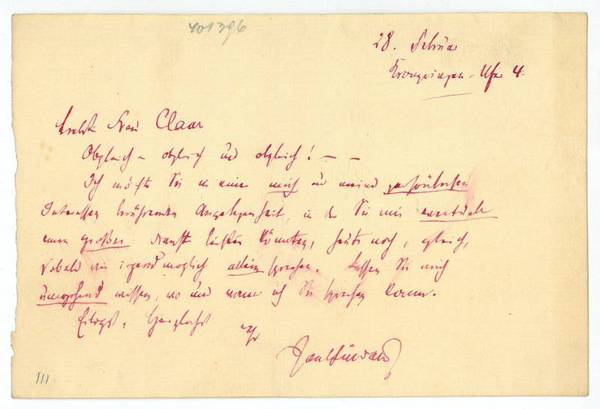 401396
28. Februar
Kronprinzen-Ufer 4.
Frau Claar
Obgleich – obgleich und obgleich! – –
Ich möchte Sie in einer mich und meine persönlichen
Interessen berührenden Angelegenheit, in der Sie mir eventuell
einen großen Dienst leisten könnten, heute noch, gleich,
sobald wie irgend möglich allein sprechen. Lassen Sie mich
umgehend wissen, wo und wann ich Sie sprechen kann.
Eiligst, herzlichst
Ihr
Paul Lindau
III